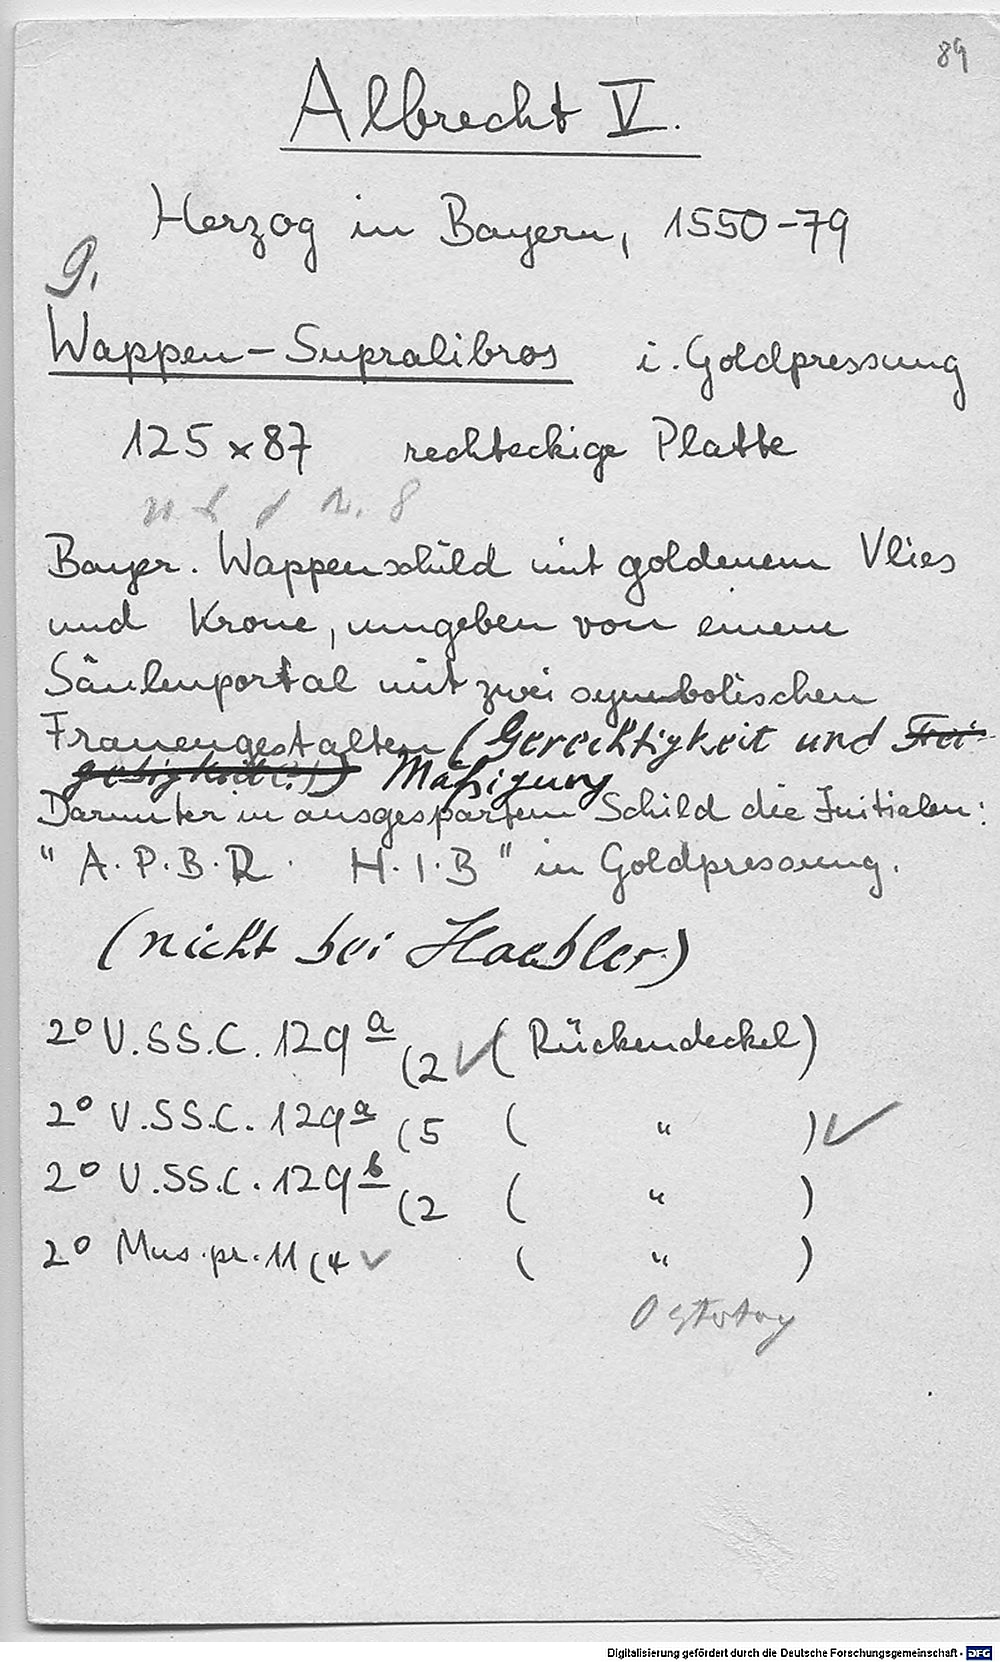 89
Albrecht V.
Herzog in Bayern, 1550-79
9.
Wappen-Supralibros i. Goldpressung
125 x 87 rechteckige Platte
N. 8
Bayer. Wappenschild mit goldenem Vlies
und Krone, umgeben von einem
Säulenportal mit zwei symbolischen
Frauengestalten (Gerechtigkeit und Frei-
gebigkeit(?)) Mäßigung
Darunter in ausgespartem Schild die Initialen:
"A.P.B.R. H.I.B" in Goldpressung.
(nicht bei Haebler)
2° V.SS.C. 129a (2 ✓ (Rückendeckel)
2° V.SS.C. 129a (5 ( " ) ✓
2° V.SS.C. 129b (2 ( " )
2° Mus.pr. 11 (4 ✓ ( " )
Digitalisierung gefördert durch die Deutsche Forschungsgemeinschaft - DFG